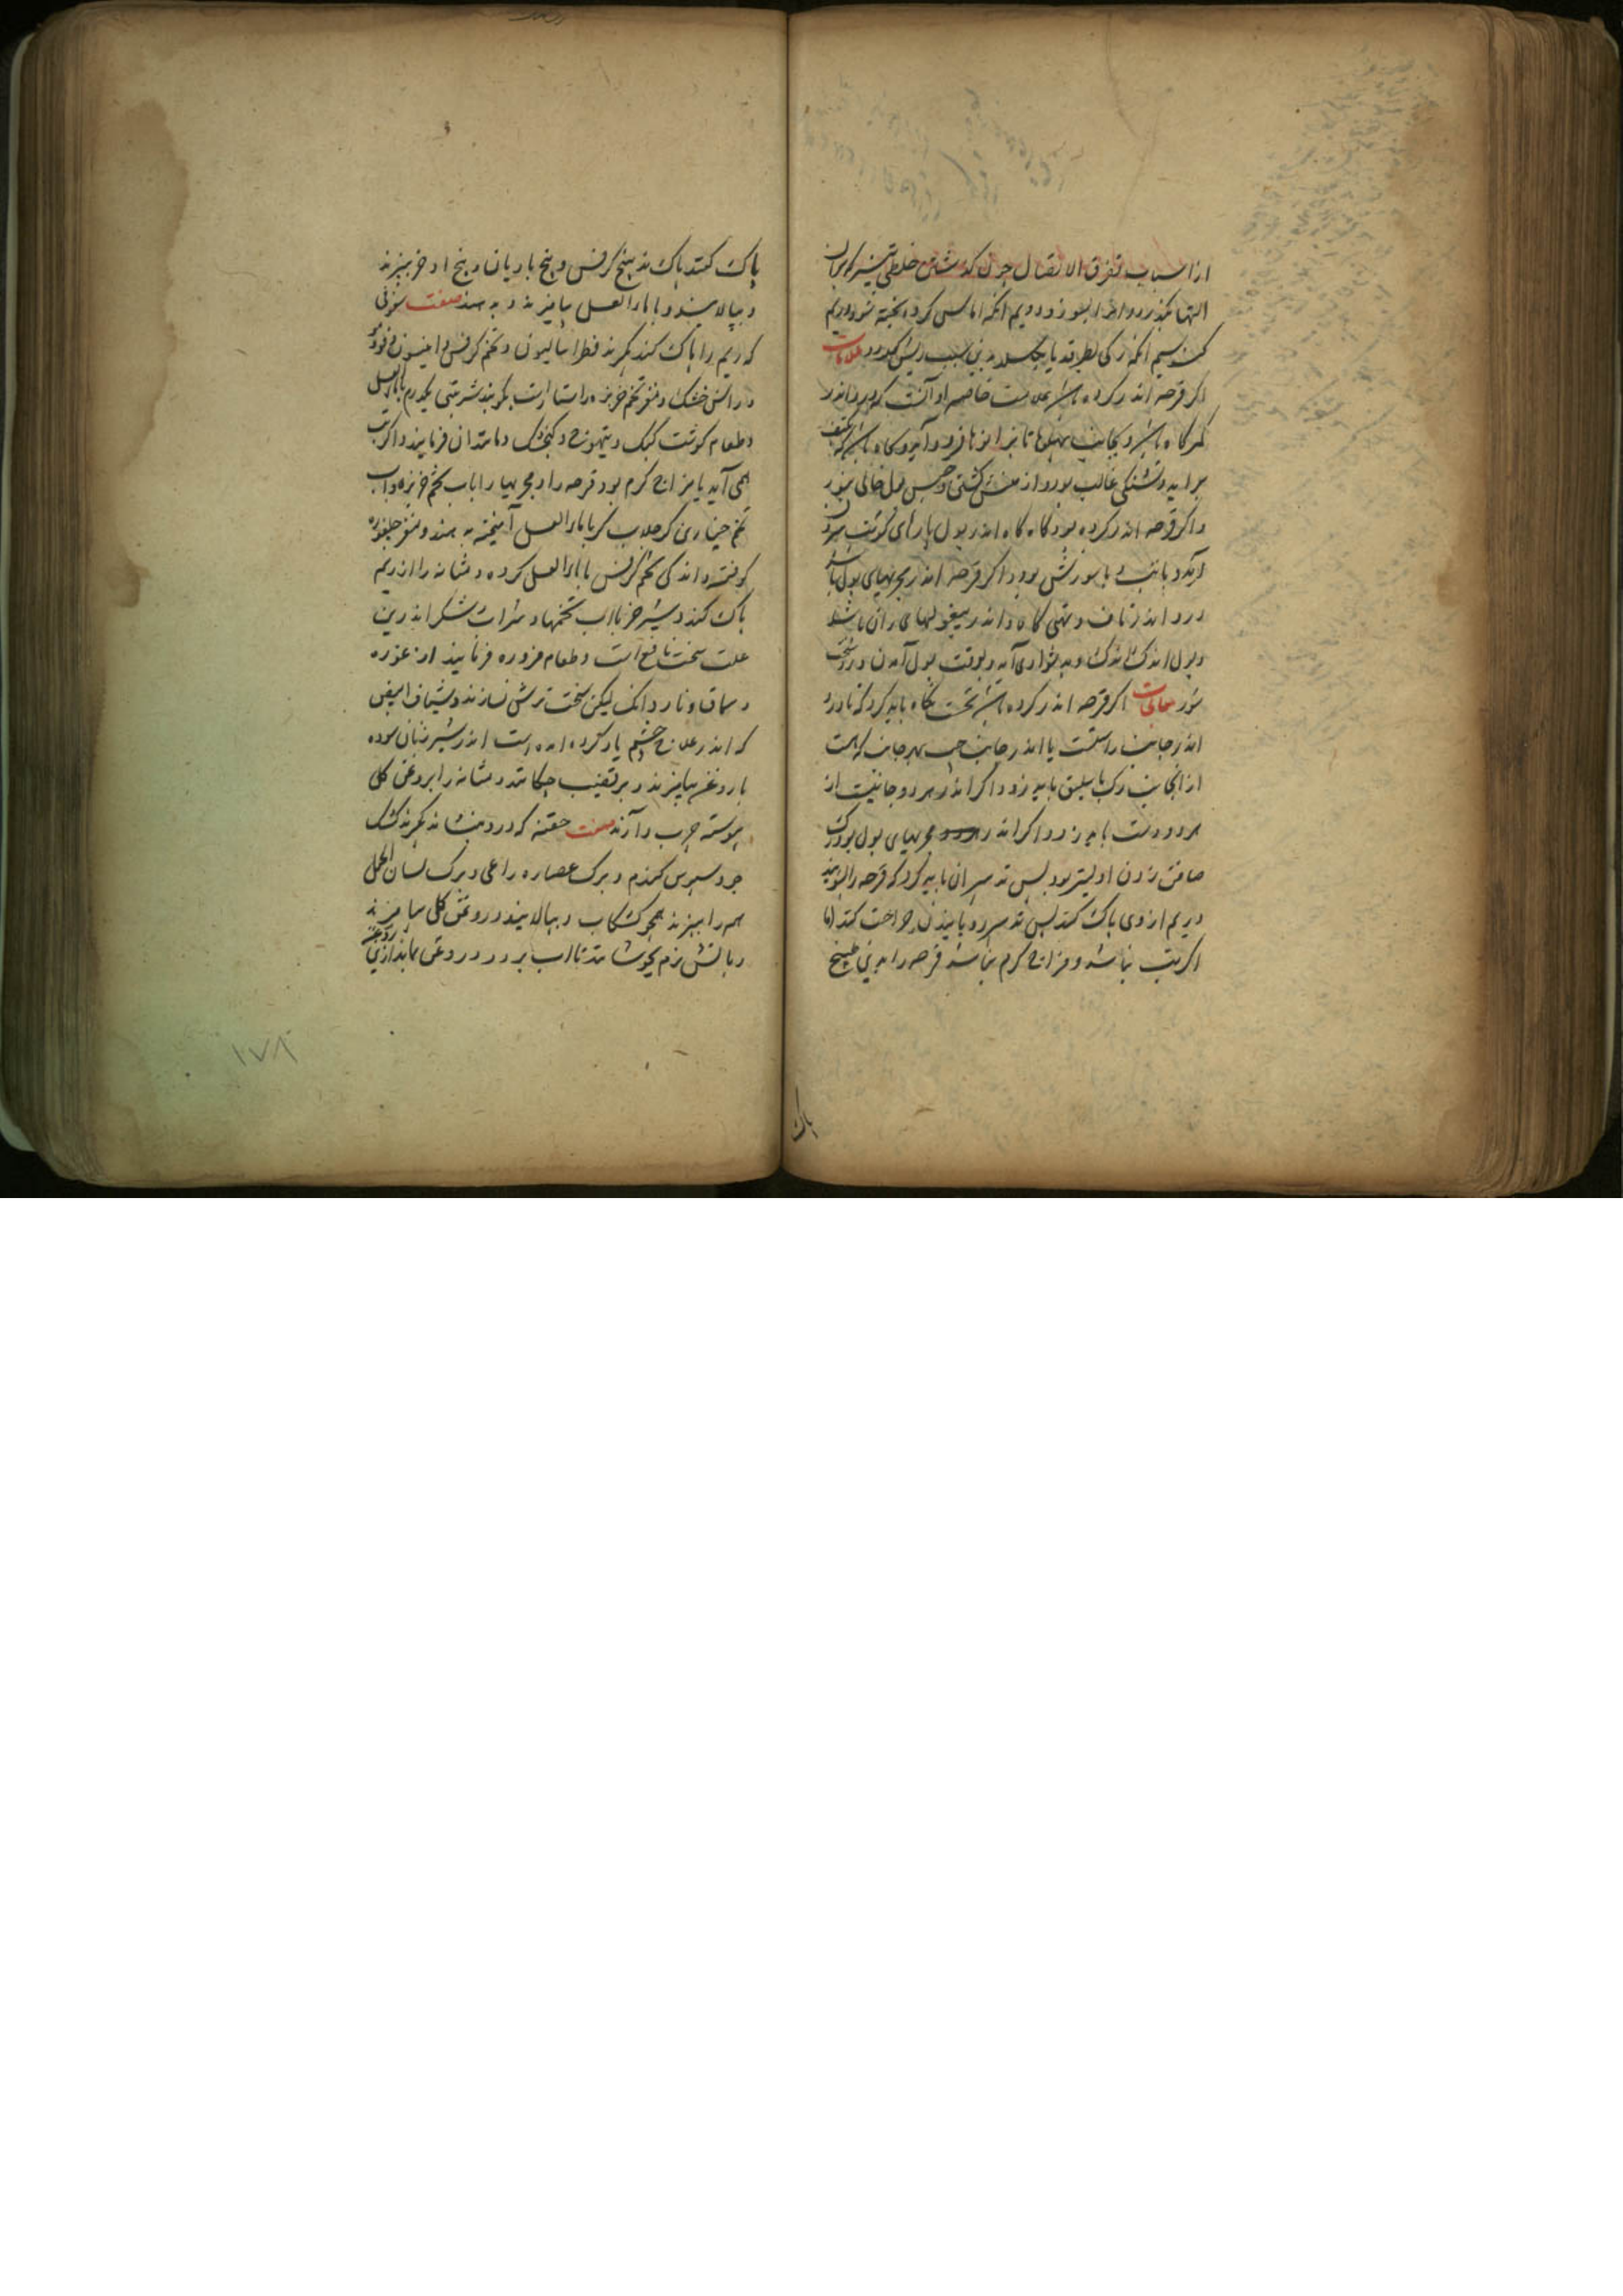 از اسباب تفرق الاتصال چون که شتن خلطی تیز که بران
التها بگذرد و انرا بسوزد دویم آنکه اماسی کرده پخته شود و ریم
کند سیم آنکه رکی بطرقد یا بکسلد بدین سبب ریش کردد علامات
اکر قرحه اندر کرده باشد علامت خاصه او آنست که درد اندر
کمرکاه باشد و بجانب پهلوها تا زانوها فرود آید و کاه باشد که
برآید و تشنکی غالب بود و از منش کشتن و حبس بول خالی نبود
و اکر قرحه اندر کرده بود کاه کاه اندر بول پارهای کوشت سرخ
آید و با تب و با سوزش بود و اکر قرحه اندر مجریهای بول باشد
درد اندر ناف و تهی کاه و اندر بیغولهای ران باشد
و بول اندک اندک و بدشواری آید و بوقت بول آمدن درد سخت
شود معالجات اکر قرحه اندر کرده باشد نخست نکاه باید کرد که تا درد
اندر جانب راستست یا اندر جانب چپ بهر جانب که هست
از آنجانب رک باسلیق باید زد و اکر اندر هر دو جانبست از
هر دو دست باید زد و اکر اندر مجریهای بول بود رک
صافن زدن اولیتر بود پس تدبیر آن باید کرد که قرحه را بشویند
و ریم از وی پاک کنند پس تدبیر رویانیدن جراحت کنند اما
اکر تب نباشد و مزاج کرم نباشد قرحه را بدین طبیخ
پاک
پاک کنند پاک تدبیر بیخ کرفس و بیخ بادیان و بیخ اذخر بپزند
و بپالایند و با ماء العسل بیامیزند و بدهند صفت سفوفی
که ریم را پاک کند بکیرند فطراسالیون و تخم کرفس و انیسون و فوه
و ایرس خشک و مغز تخم خربزه راستاراست بکیرند شربتی یکدرم با ماء العسل
و طعام کوشت کبک و تیهو و دراج و کنجشک و مانند آن فرمایند و اکر تب
همی آید یا مزاج کرم بود قرحه را و مجریها را با آب تخم خربزه و آب
تخم خیارین کر جلاب کر با ماء العسل آمیخته بدهند و مغز جلغوزه
کوفته و اندکی تخم کرفس با ماء العسل کرده و مثانه را از ریم
پاک کند و شیر خر با آب تخمها و شراب شکر اندرین
علت سخت نافع است و طعام مزوره فرمایند از غوره
و سماق و ناردانک لیکن سخت ترش نسازند و شیاف ابیض
که اندر علاج چشم یاد کرده آمده است اندر شیر زنان سوده
با روغن بیامیزند و بر قضیب چکانند و مثانه را بروغن کل
پیوسته چرب دارند صفت حقنه که درد بنشاند بکیرند کشک
جو و سبوس کندم و برک عصاره راعی و برک لسان الحمل
همه را بپزند همچو کشکاب و بپالایند و روغن کل بیامیزند
و بآتش نرم بجوشانند تا آب برود و روغن بماند ازین روغن
۱۷۸